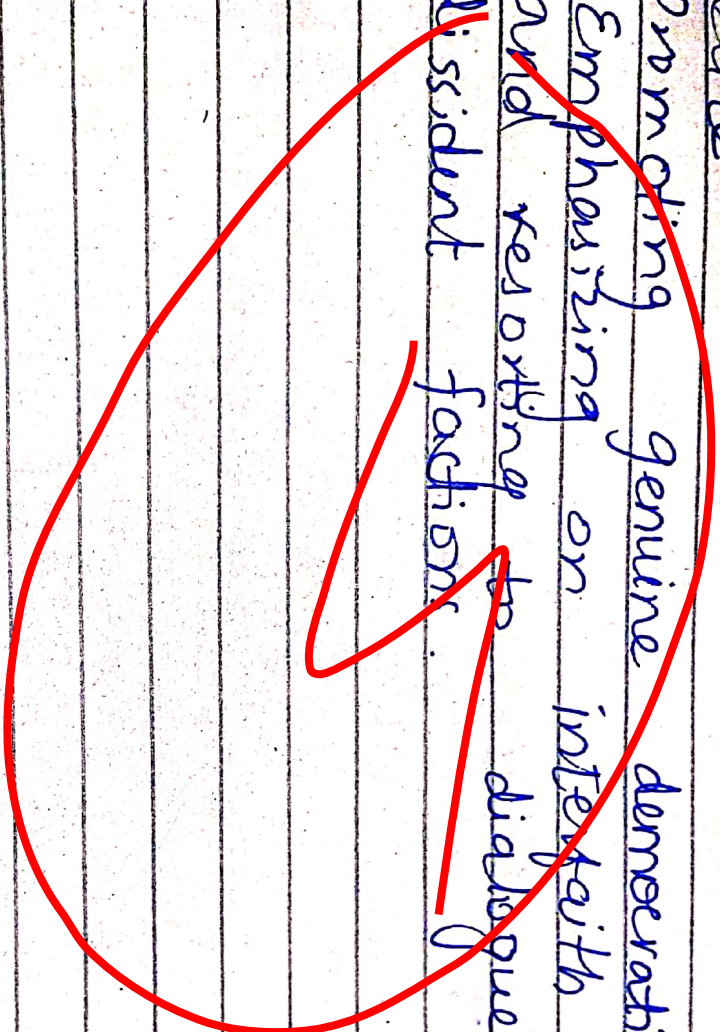 promoting genuine democrati
Emphasizing on interfaith
and resorting to dialogue
dissident factions.